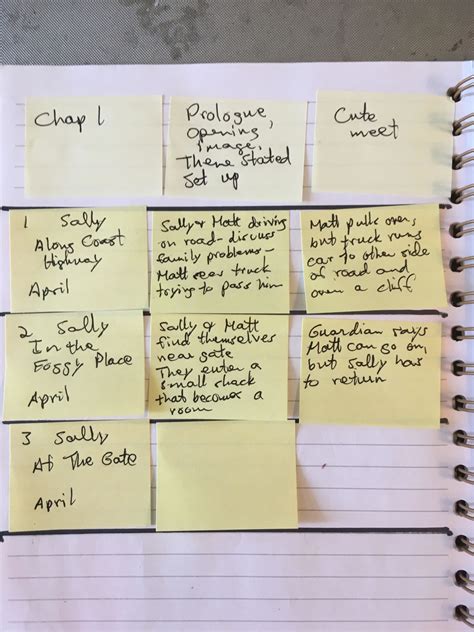 Chap 1
Prologue,
opening,
image,
Theme Stated
Set up
Cute
meet
1 Sally
Along Coast
Highway
April
Sally & Matt driving
on road - discuss
family problems -
Matt sees truck
trying to pass him
Matt pulls over,
but truck runs
car to other side
of road and
over a cliff
2 Sally
In the
Foggy Place
April
Sally & Matt
find themselves
near gate
They enter a
small shack
that becomes a
room
Guardian says
Matt can go on,
but Sally has
to return
3 Sally
At The Gate
April